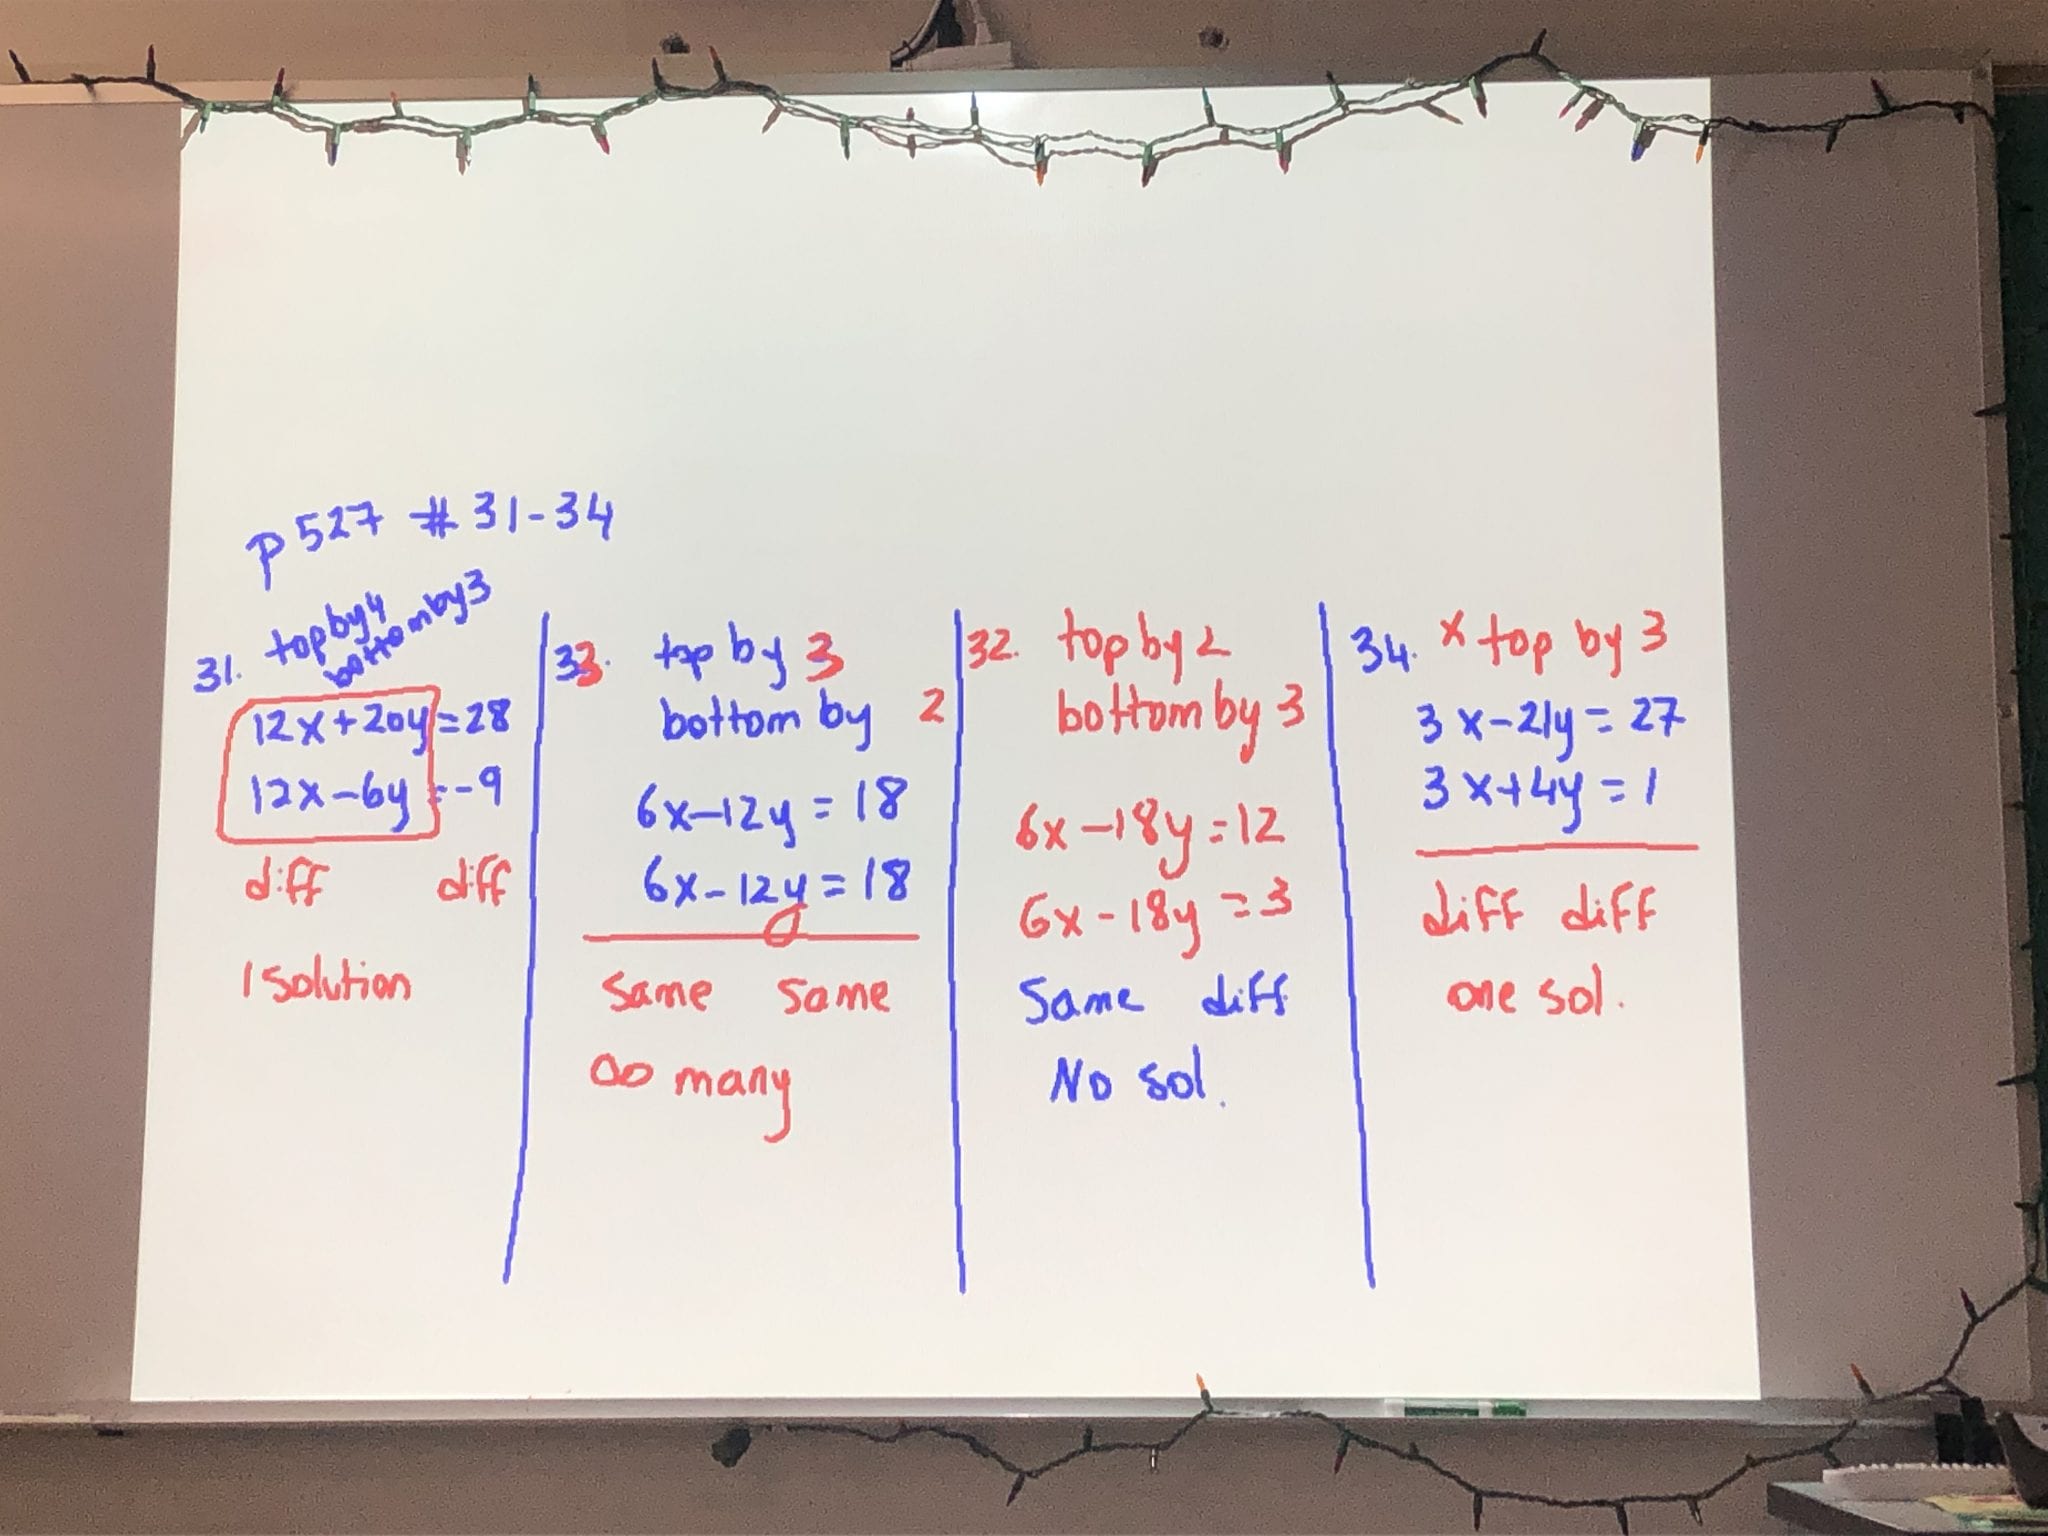 p 527 # 31-34
31. top by 4
bottom by 3
12x+20y=28
12x-6y=-9
diff diff
1 solution
33. top by 3
bottom by 2
6x-12y=18
6x-12y=18
same same
∞ many
32. top by 2
bottom by 3
6x-18y=12
6x-18y=3
Same diff
No sol.
34. x top by 3
3x-21y=27
3x+4y=1
diff diff
one sol.